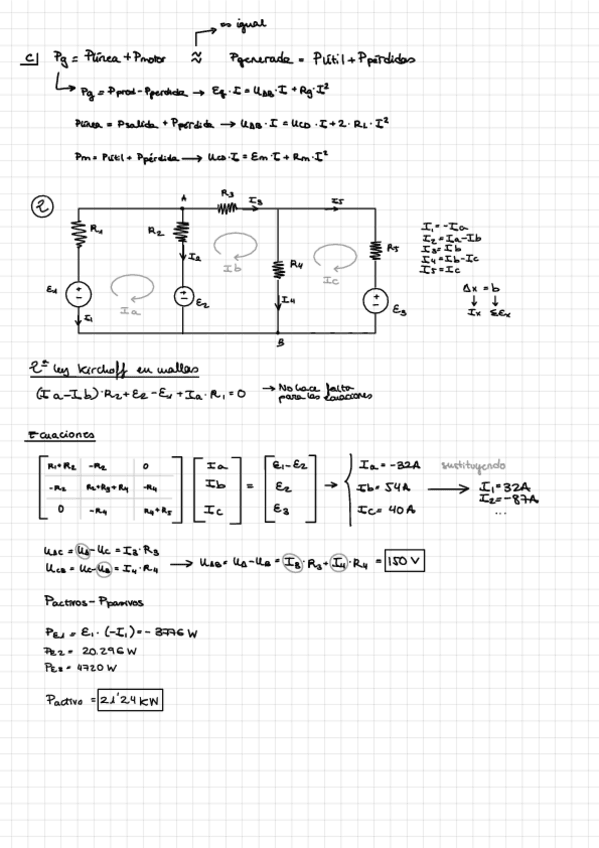 ∞ igual
c) Pg = Plínea + Pmotor ≈ Pgenerada = Pútil + Ppérdidas
Pg = Pprod - Pperdida → Eg · I = UAB · I + Rg · I²
Plínea = Psalida + Ppérdida → UAB · I = UCD · I + 2 · RL · I²
Pm = Pútil + Ppérdida → UCD · I = Em · I + Rm · I²
2
A
R3
I3
I5
R1
R2
I2
Ib
R4
Ic
R5
E1
Ia
E2
I4
E3
I1
B
I1 = -Ia
I2 = Ia - Ib
I3 = Ib
I4 = Ib - Ic
I5 = Ic
Δx = b
↓ ↓
Ix ΣEx
2ª ley Kirchoff en mallas
(Ia - Ib) · R2 + E2 - E1 + Ia · R1 = 0 → No hace falta
para las ecuaciones
Ecuaciones
R1+R2 -R2 0 Ia E1-E2 Ia = -32A sustituyendo
-R2 R2+R3+R4 -R4 Ib = E2 → Ib = 54A → I1 = 32A
0 -R4 R4+R5 Ic E3 Ic = 40A I2 = -87A
...
UAC = UA - UC = I3 · R3
UCB = UC - UB = I4 · R4 → UAB = UA - UB = I3 · R3 + I4 · R4 = 150 V
Pactivos - Ppasivos
PE1 = E1 · (-I1) = - 3776 W
PE2 = 20.296 W
PE3 = 4720 W
Pactivo = 21'24 KW